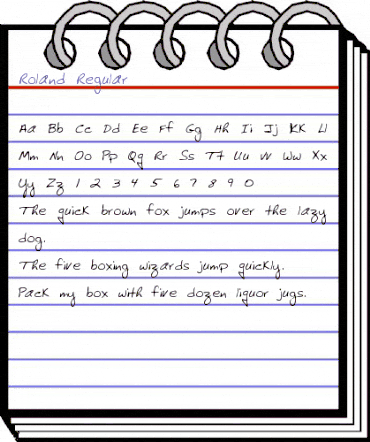 Roland Regular
Aa Bb Cc Dd Ee Ff Gg Hh Ii Jj Kk Ll
Mm Nn Oo Pp Qq Rr Ss Tt Uu Vv Ww Xx
Yy Zz 1 2 3 4 5 6 7 8 9 0
The quick brown fox jumps over the lazy
dog.
The five boxing wizards jump quickly.
Pack my box with five dozen liquor jugs.